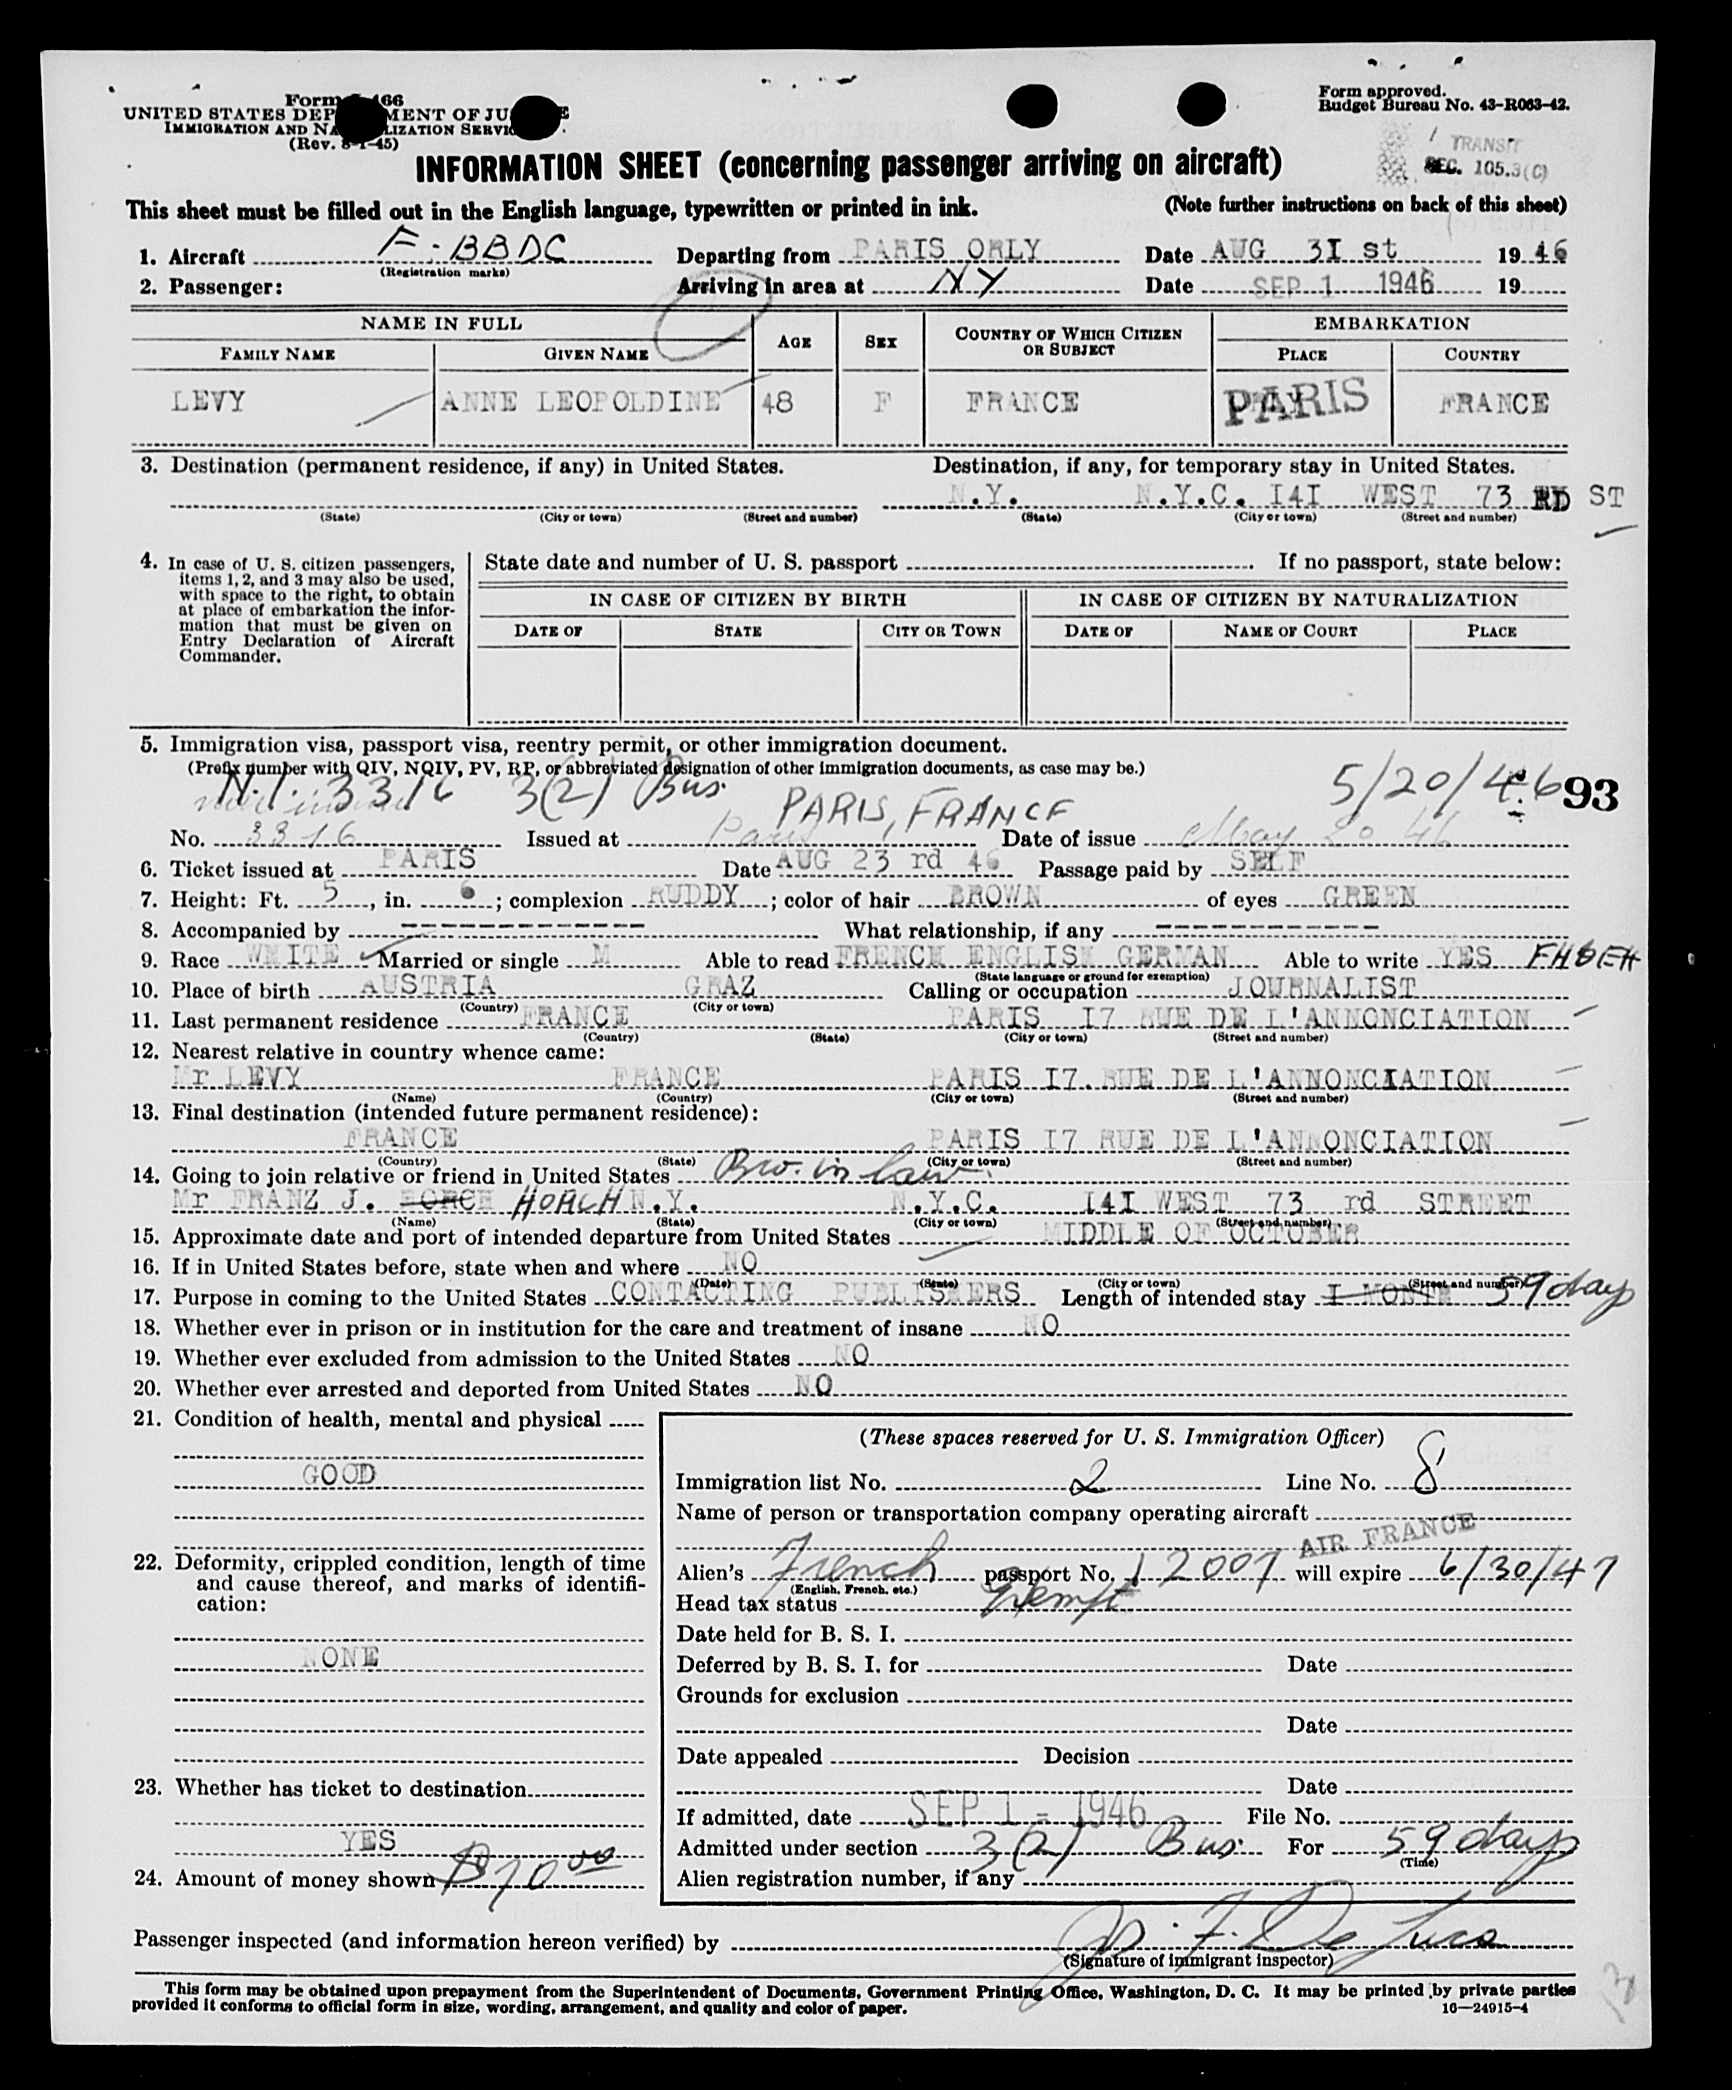 Form I-466
UNITED STATES DEPARTMENT OF JUSTICE
IMMIGRATION AND NATURALIZATION SERVICE
(Rev. 8-1-45)
Form approved.
Budget Bureau No. 43-R063-42.
TRANSIT
SEC. 105.3(C)
INFORMATION SHEET (concerning passenger arriving on aircraft)
This sheet must be filled out in the English language, typewritten or printed in ink. (Note further instructions on back of this sheet)
1. Aircraft F-BBDC Departing from PARIS ORLY Date AUG 3I st 19 46
(Registration marks)
2. Passenger: Arriving in area at NY Date SEP 1 1946 19
NAME IN FULL AGE SEX COUNTRY OF WHICH CITIZEN OR SUBJECT EMBARKATION
FAMILY NAME GIVEN NAME PLACE COUNTRY
LEVY ANNE LEOPOLDINE 48 F FRANCE PARIS FRANCE
3. Destination (permanent residence, if any) in United States. Destination, if any, for temporary stay in United States.
N.Y. N.Y.C. I4I WEST 73 RD ST
(State) (City or town) (Street and number) (State) (City or town) (Street and number)
4. In case of U. S. citizen passengers, items 1, 2, and 3 may also be used, with space to the right, to obtain at place of embarkation the information that must be given on Entry Declaration of Aircraft Commander.
State date and number of U. S. passport If no passport, state below:
IN CASE OF CITIZEN BY BIRTH IN CASE OF CITIZEN BY NATURALIZATION
DATE OF STATE CITY OR TOWN DATE OF NAME OF COURT PLACE
5. Immigration visa, passport visa, reentry permit, or other immigration document.
(Prefix number with QIV, NQIV, PV, RP, or abbreviated designation of other immigration documents, as case may be.)
N.I. 3316 3(2) Bus. PARIS, FRANCE 5/20/46 93
No. 3316 Issued at Paris Date of issue May 20 46
6. Ticket issued at PARIS Date AUG 23 rd 46 Passage paid by SELF
7. Height: Ft. 5, in. 6; complexion RUDDY; color of hair BROWN of eyes GREEN
8. Accompanied by ------------- What relationship, if any ------------
9. Race WHITE Married or single M Able to read FRENCH ENGLISH GERMAN Able to write YES
(State language or ground for exemption)
10. Place of birth AUSTRIA GRAZ Calling or occupation JOURNALIST
(Country) (City or town)
11. Last permanent residence FRANCE PARIS I7 RUE DE L'ANNONCIATION
(Country) (State) (City or town) (Street and number)
12. Nearest relative in country whence came:
Mr LEVY FRANCE PARIS I7.RUE DE L'ANNONCIATION
(Name) (Country) (City or town) (Street and number)
13. Final destination (intended future permanent residence):
FRANCE PARIS I7 RUE DE L'ANNONCIATION
(Country) (State) (City or town) (Street and number)
14. Going to join relative or friend in United States Bro. in law.
Mr FRANZ J. HORCH N.Y. N.Y.C. I4I WEST 73 rd STREET
(Name) (State) (City or town) (Street and number)
15. Approximate date and port of intended departure from United States MIDDLE OF OCTOBER
16. If in United States before, state when and where NO
(Date) (State) (City or town) (Street and number)
17. Purpose in coming to the United States CONTACTING PUBLISHERS Length of intended stay I MONTH 59 days
18. Whether ever in prison or in institution for the care and treatment of insane NO
19. Whether ever excluded from admission to the United States NO
20. Whether ever arrested and deported from United States NO
21. Condition of health, mental and physical
GOOD
22. Deformity, crippled condition, length of time and cause thereof, and marks of identification:
NONE
23. Whether has ticket to destination
YES
24. Amount of money shown $70.00
(These spaces reserved for U. S. Immigration Officer)
Immigration list No. 2 Line No. 8
Name of person or transportation company operating aircraft
AIR FRANCE
Alien's French passport No. 12007 will expire 6/30/47
(English, French, etc.)
Head tax status Exempt
Date held for B. S. I.
Deferred by B. S. I. for Date
Grounds for exclusion
Date
Date appealed Decision
Date
If admitted, date SEP 1 - 1946 File No.
Admitted under section 3(2) Bus. For 59 days
(Time)
Alien registration number, if any
Passenger inspected (and information hereon verified) by Jos. F. De Luca
(Signature of immigrant inspector)
This form may be obtained upon prepayment from the Superintendent of Documents, Government Printing Office, Washington, D. C. It may be printed by private parties
provided it conforms to official form in size, wording, arrangement, and quality and color of paper. 16—24915-4